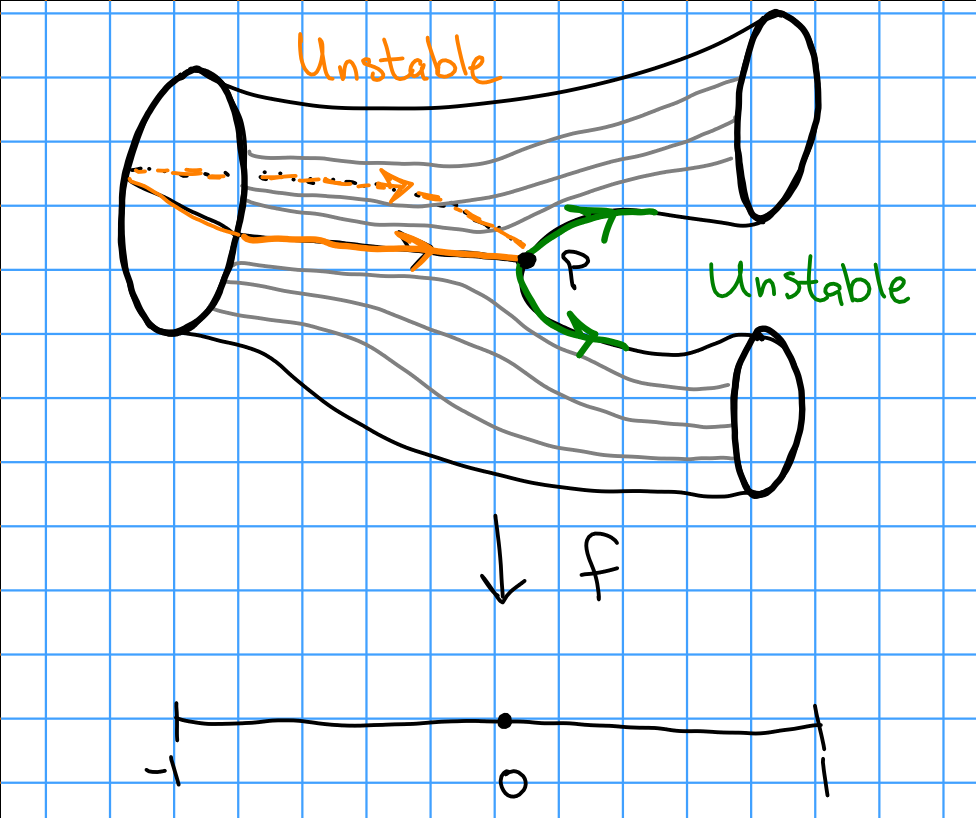 Unstable
p
Unstable
f
-1
0
1